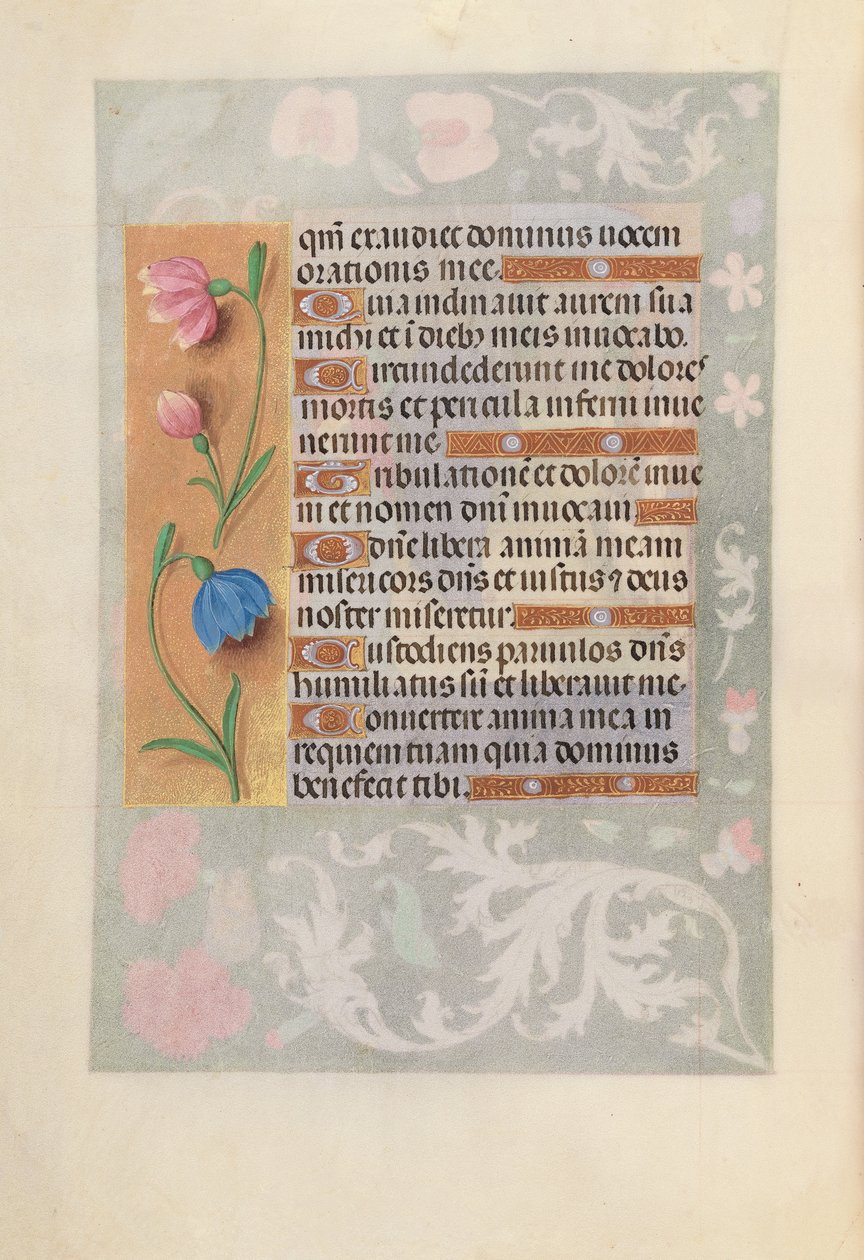 qm̄ exaudiet dominus uocem
orationis mee.
Quia inclinauit aurem sua
michi et ī diebꝫ meis inuocabo.
Circundederunt me dolores
mortis et pericula inferni inue
nerunt me.
Tribulationē et dolorē inue
ni et nomen dnī inuocaui.
O dn̄e libera animā meam
misericors dn̄s et iustus ⁊ deus
noster miseretur.
Custodiens paruulos dn̄s
humiliatus sū et liberauit me.
Conuertere anima mea in
requiem tuam quia dominus
benefecit tibi.